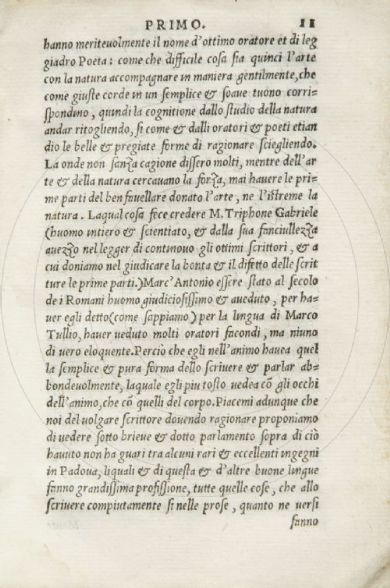 PRIMO. 11
hanno meriteuolmente il nome d'ottimo oratore et di leg
giadro Poeta: come che difficile cosa sia quinci l'arte
con la natura accompagnare in maniera gentilmente, che
come giuste corde in un semplice & soaue tuono corri-
spondino, quindi la cognitione dallo studio della natura
andar ritogliendo, si come & dalli oratori & poeti etian
dio le belle & pregiate forme di ragionare sciegliendo.
La onde non sanza cagione dissero molti, mentre dell'ar
te & della natura cercauano la forza, mai hauere le pri=
me parti del ben fauellare donato l'arte, ne l'istreme la
natura. Laqual cosa fece credere M. Triphone Gabriele
(huomo intiero & scientiato, & dalla sua fanciullezza
auezzo nel legger di continouo gli ottimi scrittori, & a
cui doniamo nel giudicare la bonta & il difetto delle scrit
ture le prime parti.) Marc'Antonio essere stato al secolo
de i Romani huomo giudiciosissimo & aueduto, per ha=
uer egli detto (come sappiamo) per la lingua di Marco
Tullio, hauer ueduto molti oratori facondi, ma niuno
di uero eloquente. Percio che egli nell'animo hauea quel
la semplice & pura forma dello scriuere & parlar ab=
bondeuolmente, laquale egli piu tosto uedea cō gli occhi
dell'animo, che cō quelli del corpo. Piacemi adunque che
noi del uolgare scrittore douendo ragionare proponiamo
di uedere sotto brieue & dotto parlamento sopra di ciò
hauuto non ha guari tra alcuni rari & eccellenti ingegni
in Padoua, liquali & di questa & d'altre buone lingue
fanno grandissima professione, tutte quelle cose, che allo
scriuere compiutamente si nelle prose, quanto ne uersi
fanno